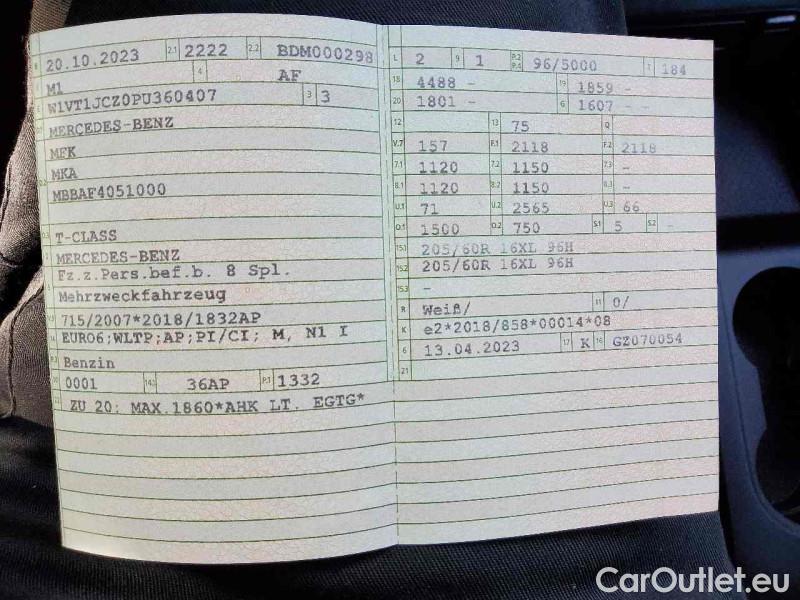 B 20.10.2023 2.1 2222 2.2 BDM000298
J M1 4 AF
E W1VT1JCZ0PU360407 3 3
MERCEDES-BENZ
MFK
MKA
MBBAF4051000
D.3 T-CLASS
MERCEDES-BENZ
Fz.z.Pers.bef.b. 8 Spl.
Mehrzweckfahrzeug
V.9 715/2007*2018/1832AP
14 EURO6;WLTP;AP;PI/CI; M, N1 I
P.3 Benzin
10 0001 14.1 36AP P.1 1332
22 ZU 20: MAX.1860*AHK LT. EGTG*
L 2 9 1 P.2 P.4 96/5000 T 184
18 4488 - 19 1859 -
20 1801 - G 1607 -
12 13 75 Q
V.7 157 F.1 2118 F.2 2118
7.1 1120 7.2 1150 7.3 -
8.1 1120 8.2 1150 8.3 -
U.1 71 U.2 2565 U.3 66
O.1 1500 O.2 750 S.1 5 S.2 -
15.1 205/60R 16XL 96H
15.2 205/60R 16XL 96H
15.3 -
R Weiß/ 11 0/
K e2*2018/858*00014*08
6 13.04.2023 17 K 16 GZ070054
21
CarOutlet.eu